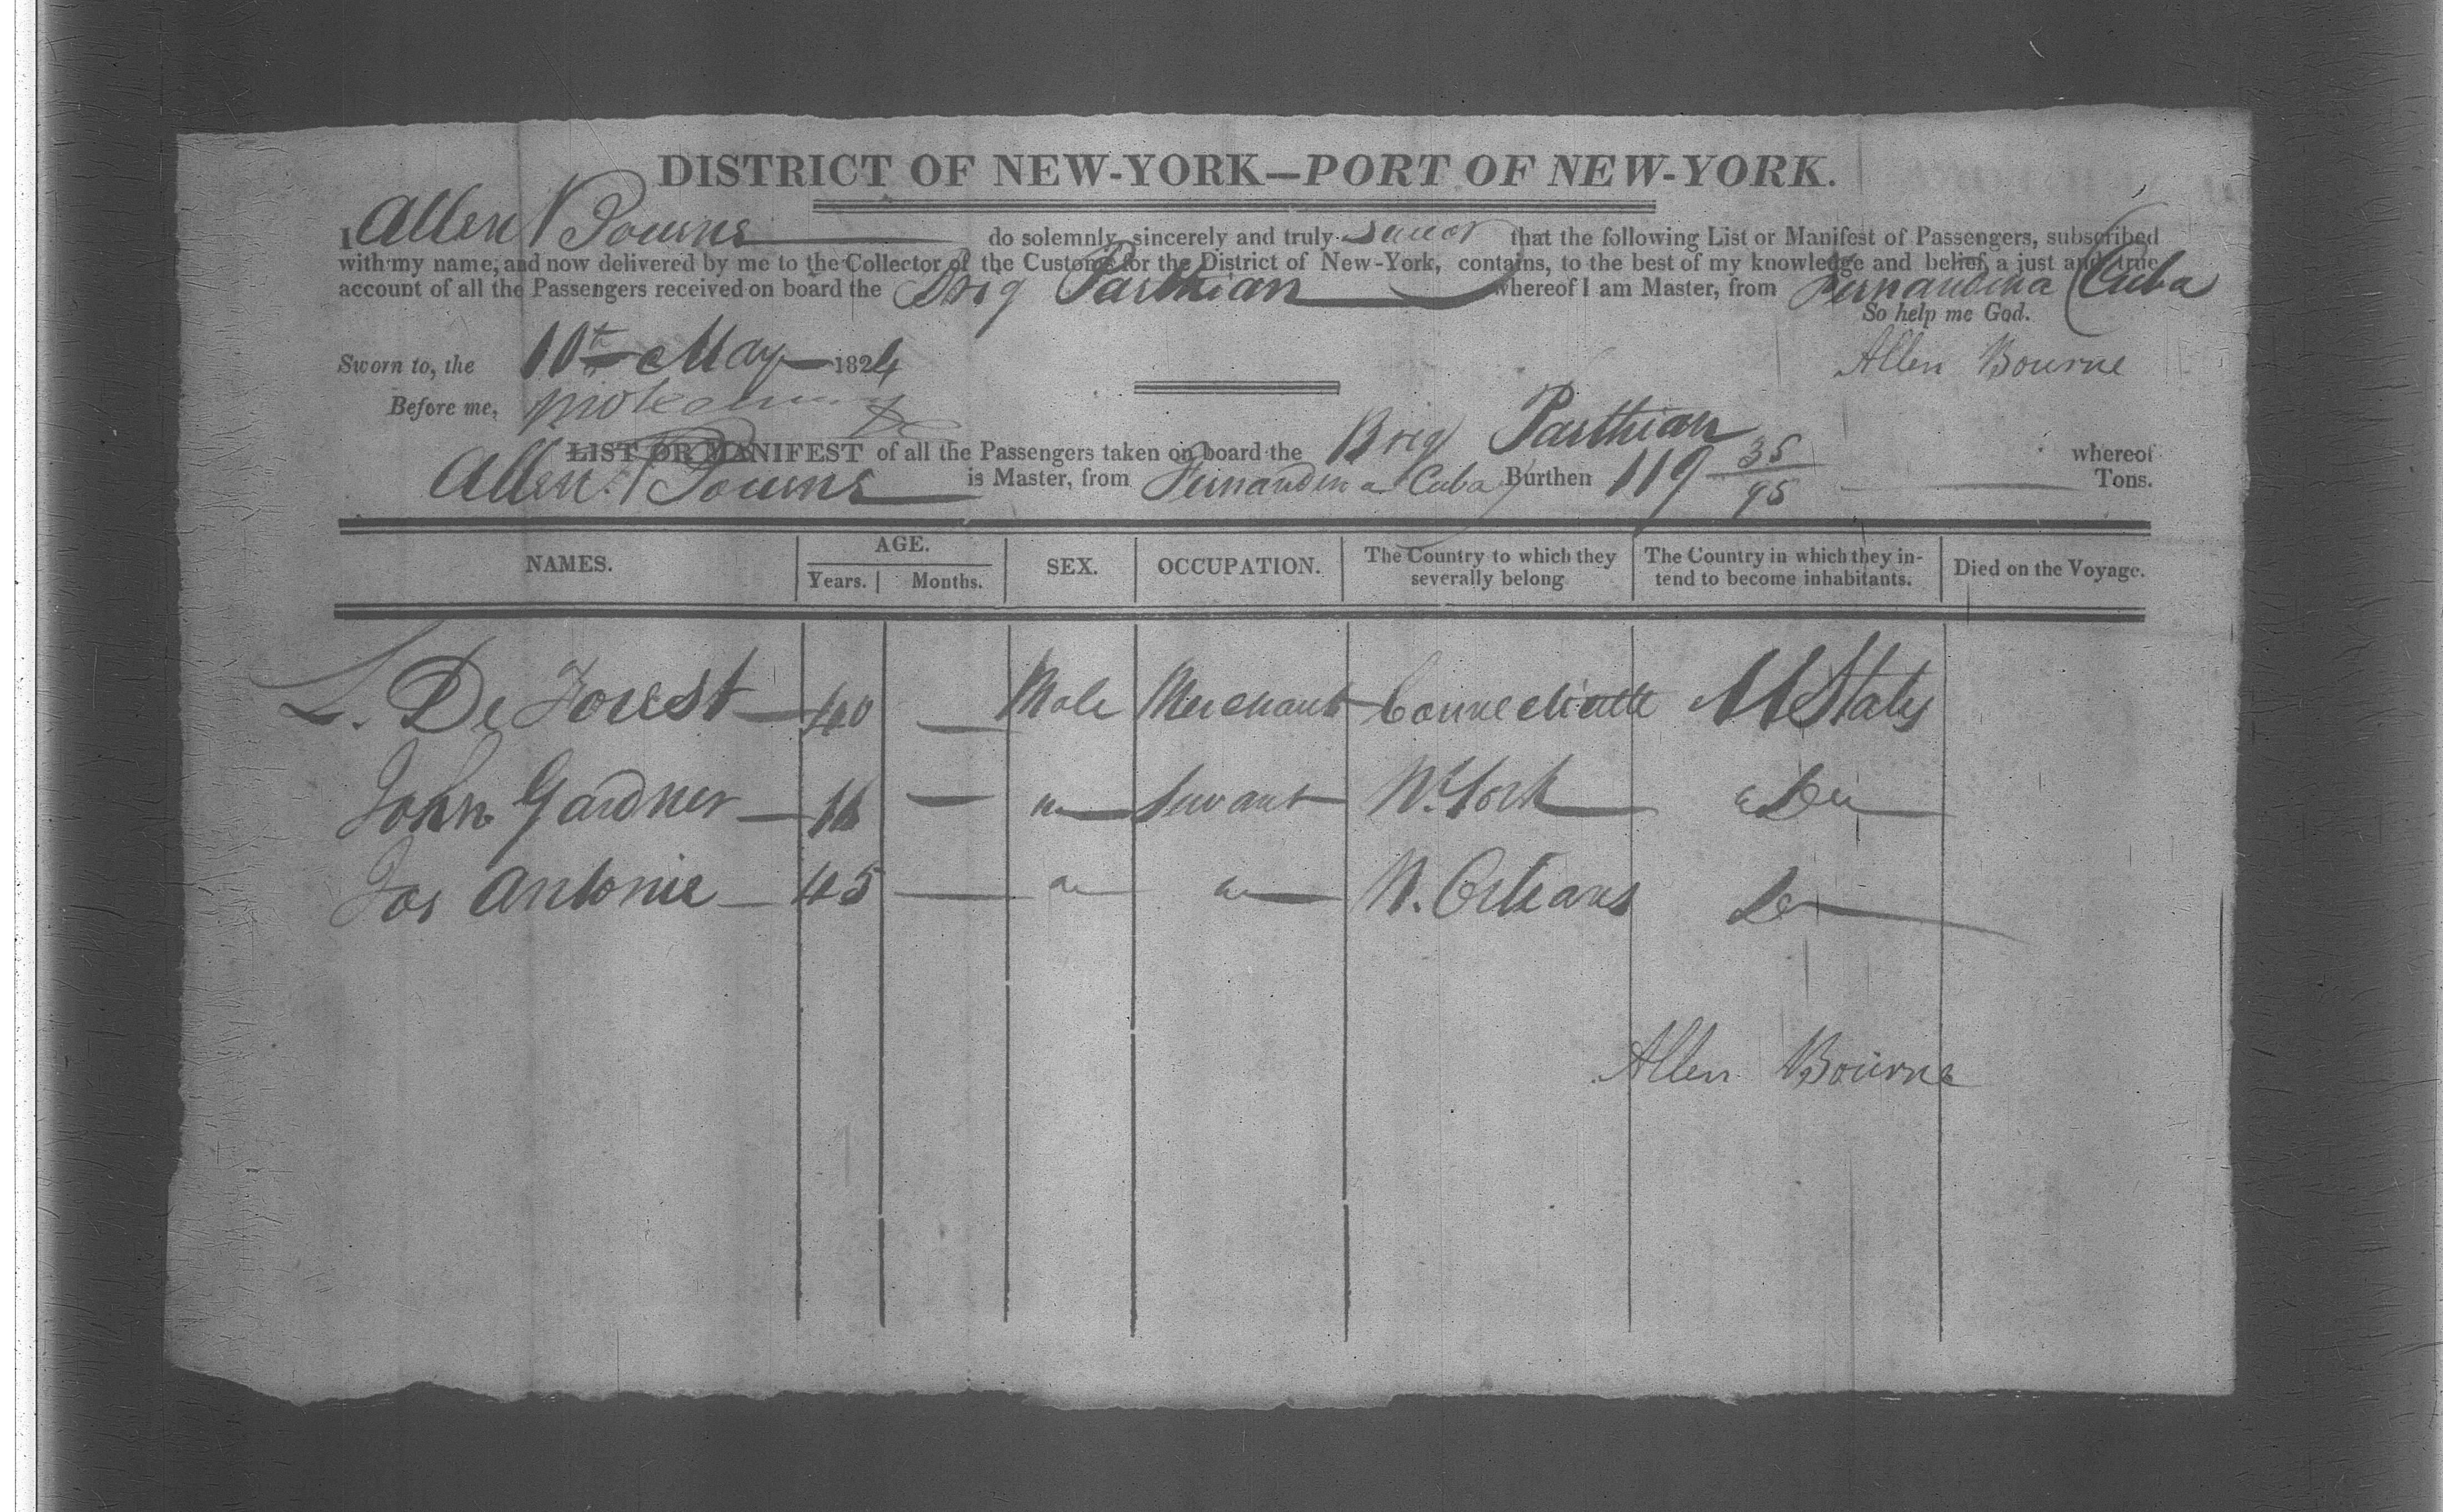 DISTRICT OF NEW-YORK—PORT OF NEW-YORK.
I Allen Bourne do solemnly, sincerely and truly swear that the following List or Manifest of Passengers, subscribed
with my name, and now delivered by me to the Collector of the Customs for the District of New-York, contains, to the best of my knowledge and belief, a just and true
account of all the Passengers received on board the Brig Parthian whereof I am Master, from Fernandina Cuba
So help me God.
Sworn to, the 10th May 1824 Allen Bourne
Before me,
LIST OR MANIFEST of all the Passengers taken on board the Brig Parthian whereof
Allen Bourne is Master, from Fernandina Cuba Burthen 119 35/95 Tons.
NAMES. AGE. SEX. OCCUPATION. The Country to which they severally belong The Country in which they intend to become inhabitants. Died on the Voyage.
Years. Months.
L. De Forest 40 — Male Merchant Connecticutt U States
John Gardner 16 — " Servant N. York Do
Jos Antonie 45 — " " N. Orleans Do
Allen Bourne